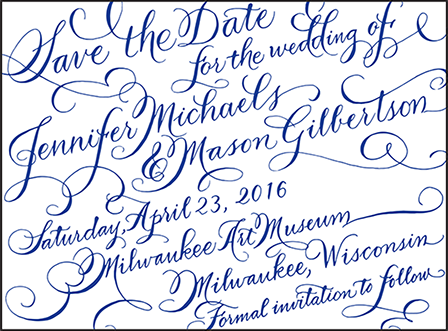 Save the Date
for the wedding of
Jennifer Michaels
& Mason Gilbertson
Saturday, April 23, 2016
Milwaukee Art Museum
Milwaukee, Wisconsin
Formal invitation to follow